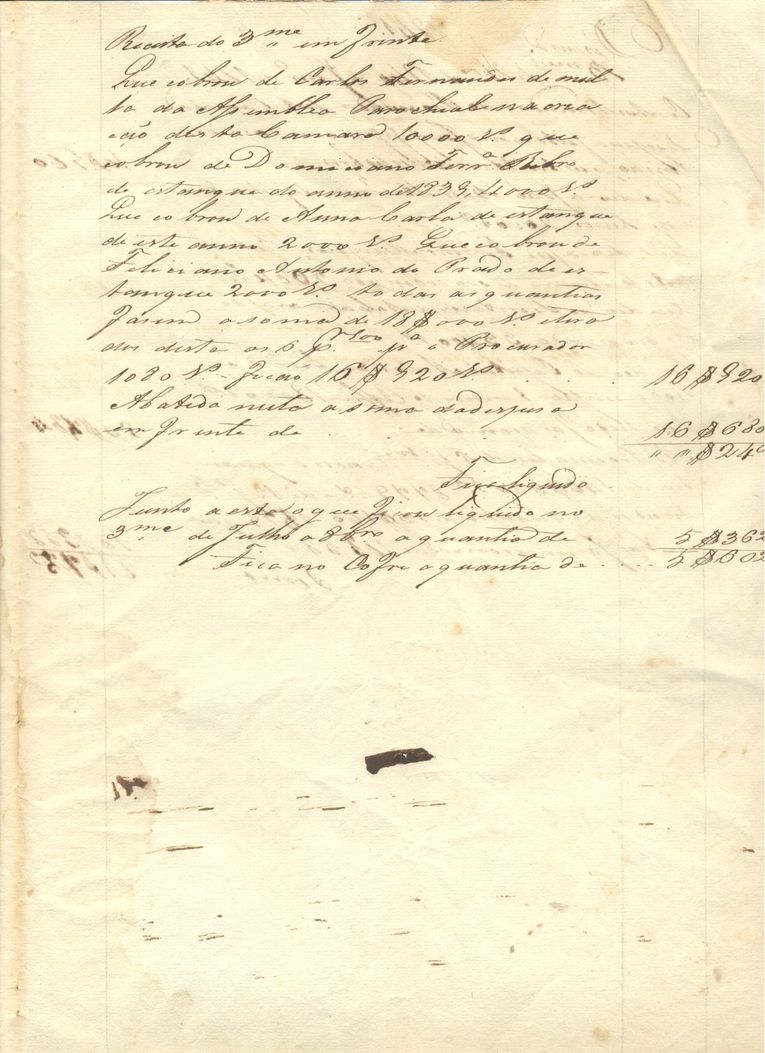 Receita do 3.me em frente
Que cobrou de Carlos Fernandes de mul
ta da Assemblea Parochial na orea
ção desta Camara 10000 rs. que
cobrou de Domiciano Ferr.a Ribro
de estanque do anno de 1833, 4000 rs.
Que cobrou de Anna Carla de estanque
de este anno 2000 rs. Que cobrou de
Feliciano Antonio do Prado de es-
tanque 2000 rs. todas as quantias
fasem a soma de 18$000 rs. etira
dos desta os 6 p.r 100 p.a o Procurador
1080 rs. ficão 16$920 rs. . . . 16$920
Abatida nesta a soma da despesa
em frente de . . . 16$680
" " $240
Fica liquido
Junto a esta o que ficou liquido no
3.me de Julho a 8bro a quantia de 5$362
Fica no Cofre a quantia de . . . 5$602